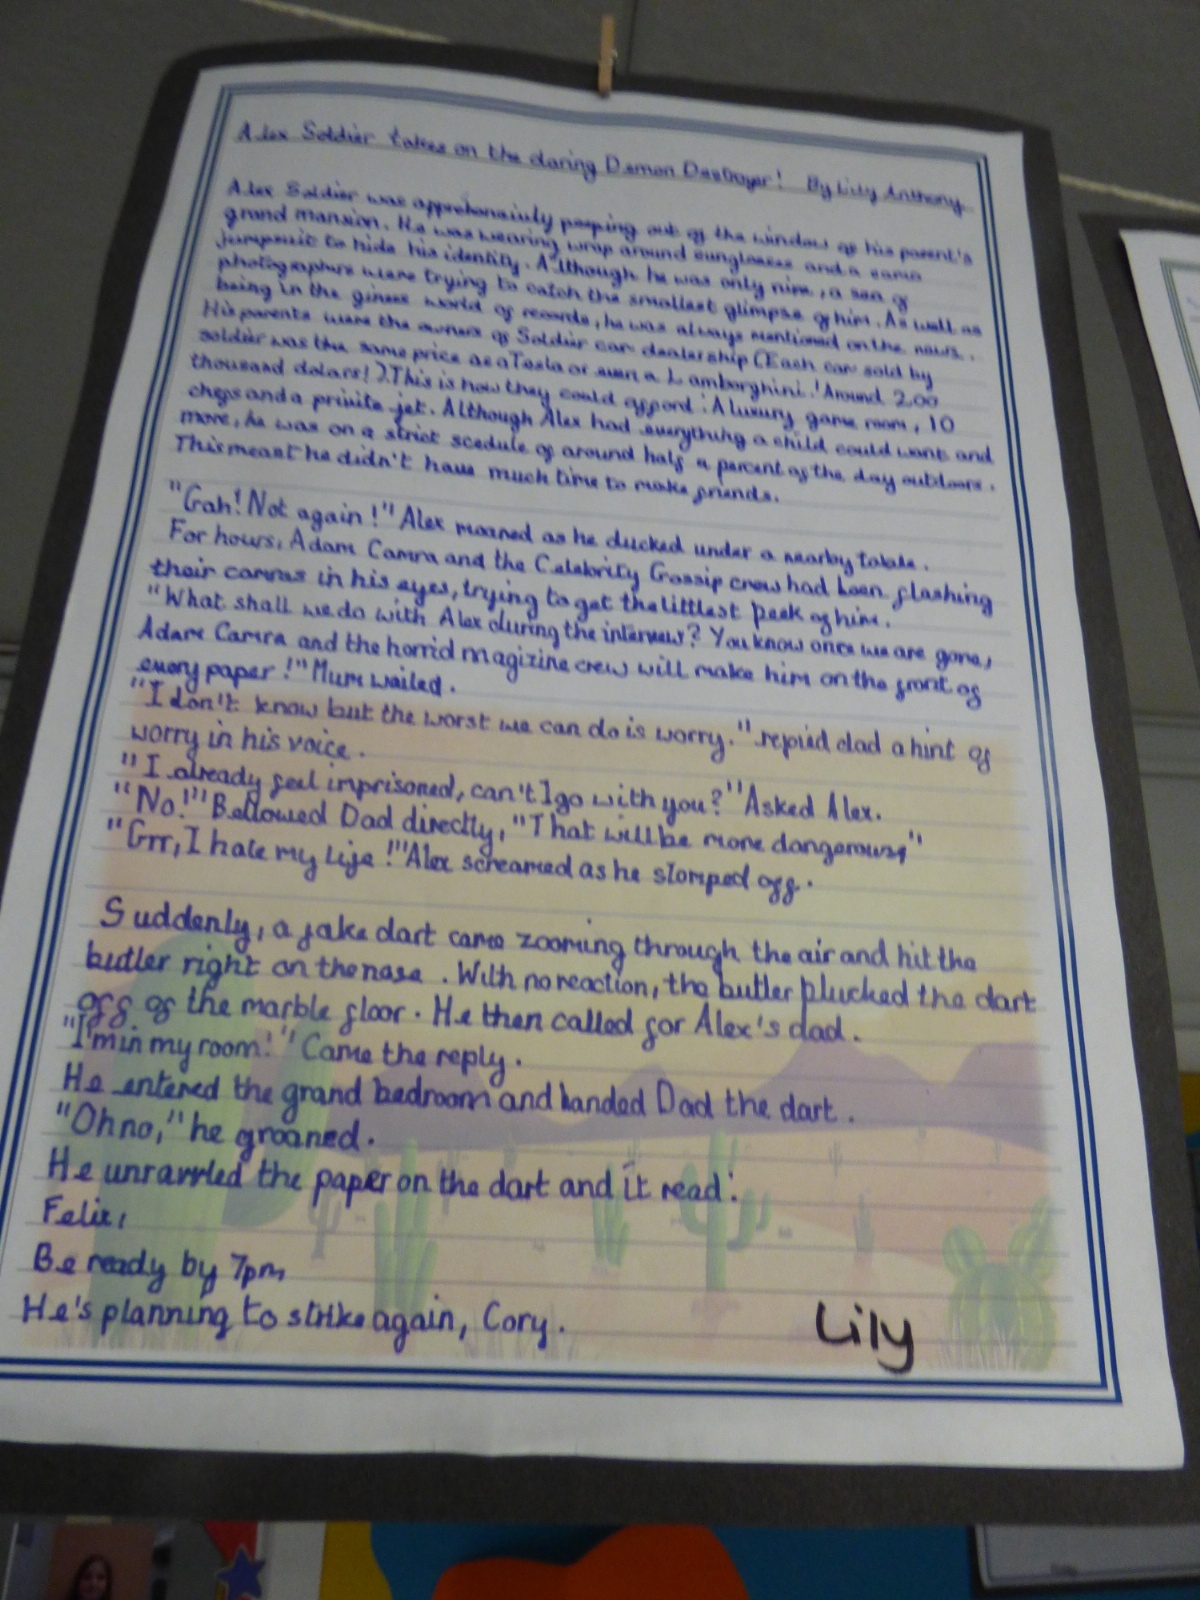 Alex Soldier takes on the daring Demon Destroyer! By Lily Anthony
Alex Soldier was apprehensivly peeping out of the window of his parent's
grand mansion. He was wearing wrap around sunglasses and a
jumpsuit to hide his identity. Although he was only nine, a sea of
photographers were trying to catch the smallest glimpse of him. As well as
being in the giness world of records, he was always mentioned on the news.
His parents were the owners of Soldier car dealership (Each car sold by
soldier was the same price as a Tesla or even a Lamborghini! Around 200
thousand dolars!). This is how they could afford: A luxury game room, 10
chefs and a privite jet. Although Alex had everything a child could want and
more, he was on a strict scedule of around half a percent of the day outdoors.
This meant he didn't have much time to make friends.
"Gah! Not again!" Alex moaned as he ducked under a nearby table.
For hours, Adam Camra and the Celebrity Gossip crew had been flashing
their camras in his eyes, trying to get the littlest peek of him.
"What shall we do with Alex during the interview? You know once we are gone,
Adam Camra and the horrid magizine crew will make him on the front of
every paper!" Mum wailed.
"I don't know but the worst we can do is worry." repied dad a hint of
worry in his voice.
"I already feel imprisoned, can't I go with you?" Asked Alex.
"No!" Bellowed Dad directly, "That will be more dangerous,"
"Grr, I hate my life!" Alex screamed as he stomped off.
Suddenly, a fake dart came zooming through the air and hit the
butler right on the nose. With no reaction, the butler plucked the dart
off of the marble floor. He then called for Alex's dad.
"I'm in my room!" Came the reply.
He entered the grand bedroom and handed Dad the dart.
"Oh no," he groaned.
He unravrled the paper on the dart and it read:
Felix,
Be ready by 7pm,
He's planning to strike again, Cory.
Lily